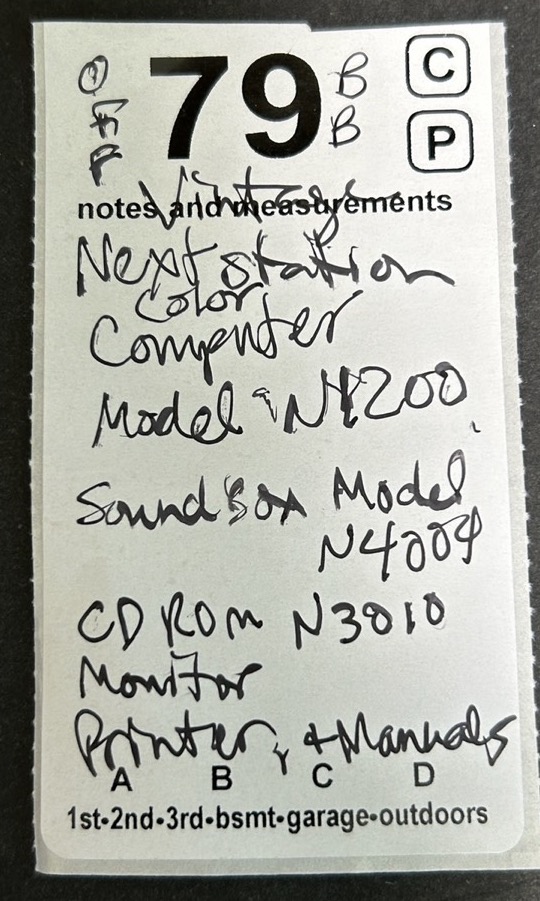 OFF 79 BB C
P
Vintage
notes and measurements
Nextstation
Color
Computer
Model N1200
Soundbox Model
N4004
CD ROM N3010
Monitor
Printer, + Manuals
A B C D
1st•2nd•3rd•bsmt•garage•outdoors